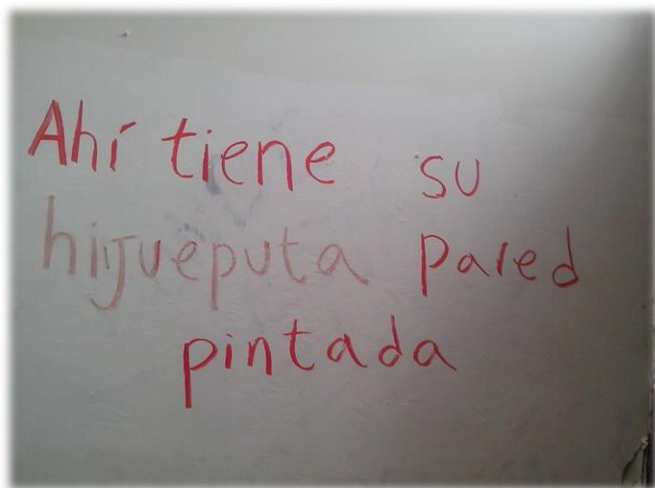 Ahí tiene su
hijueputa pared
pintada